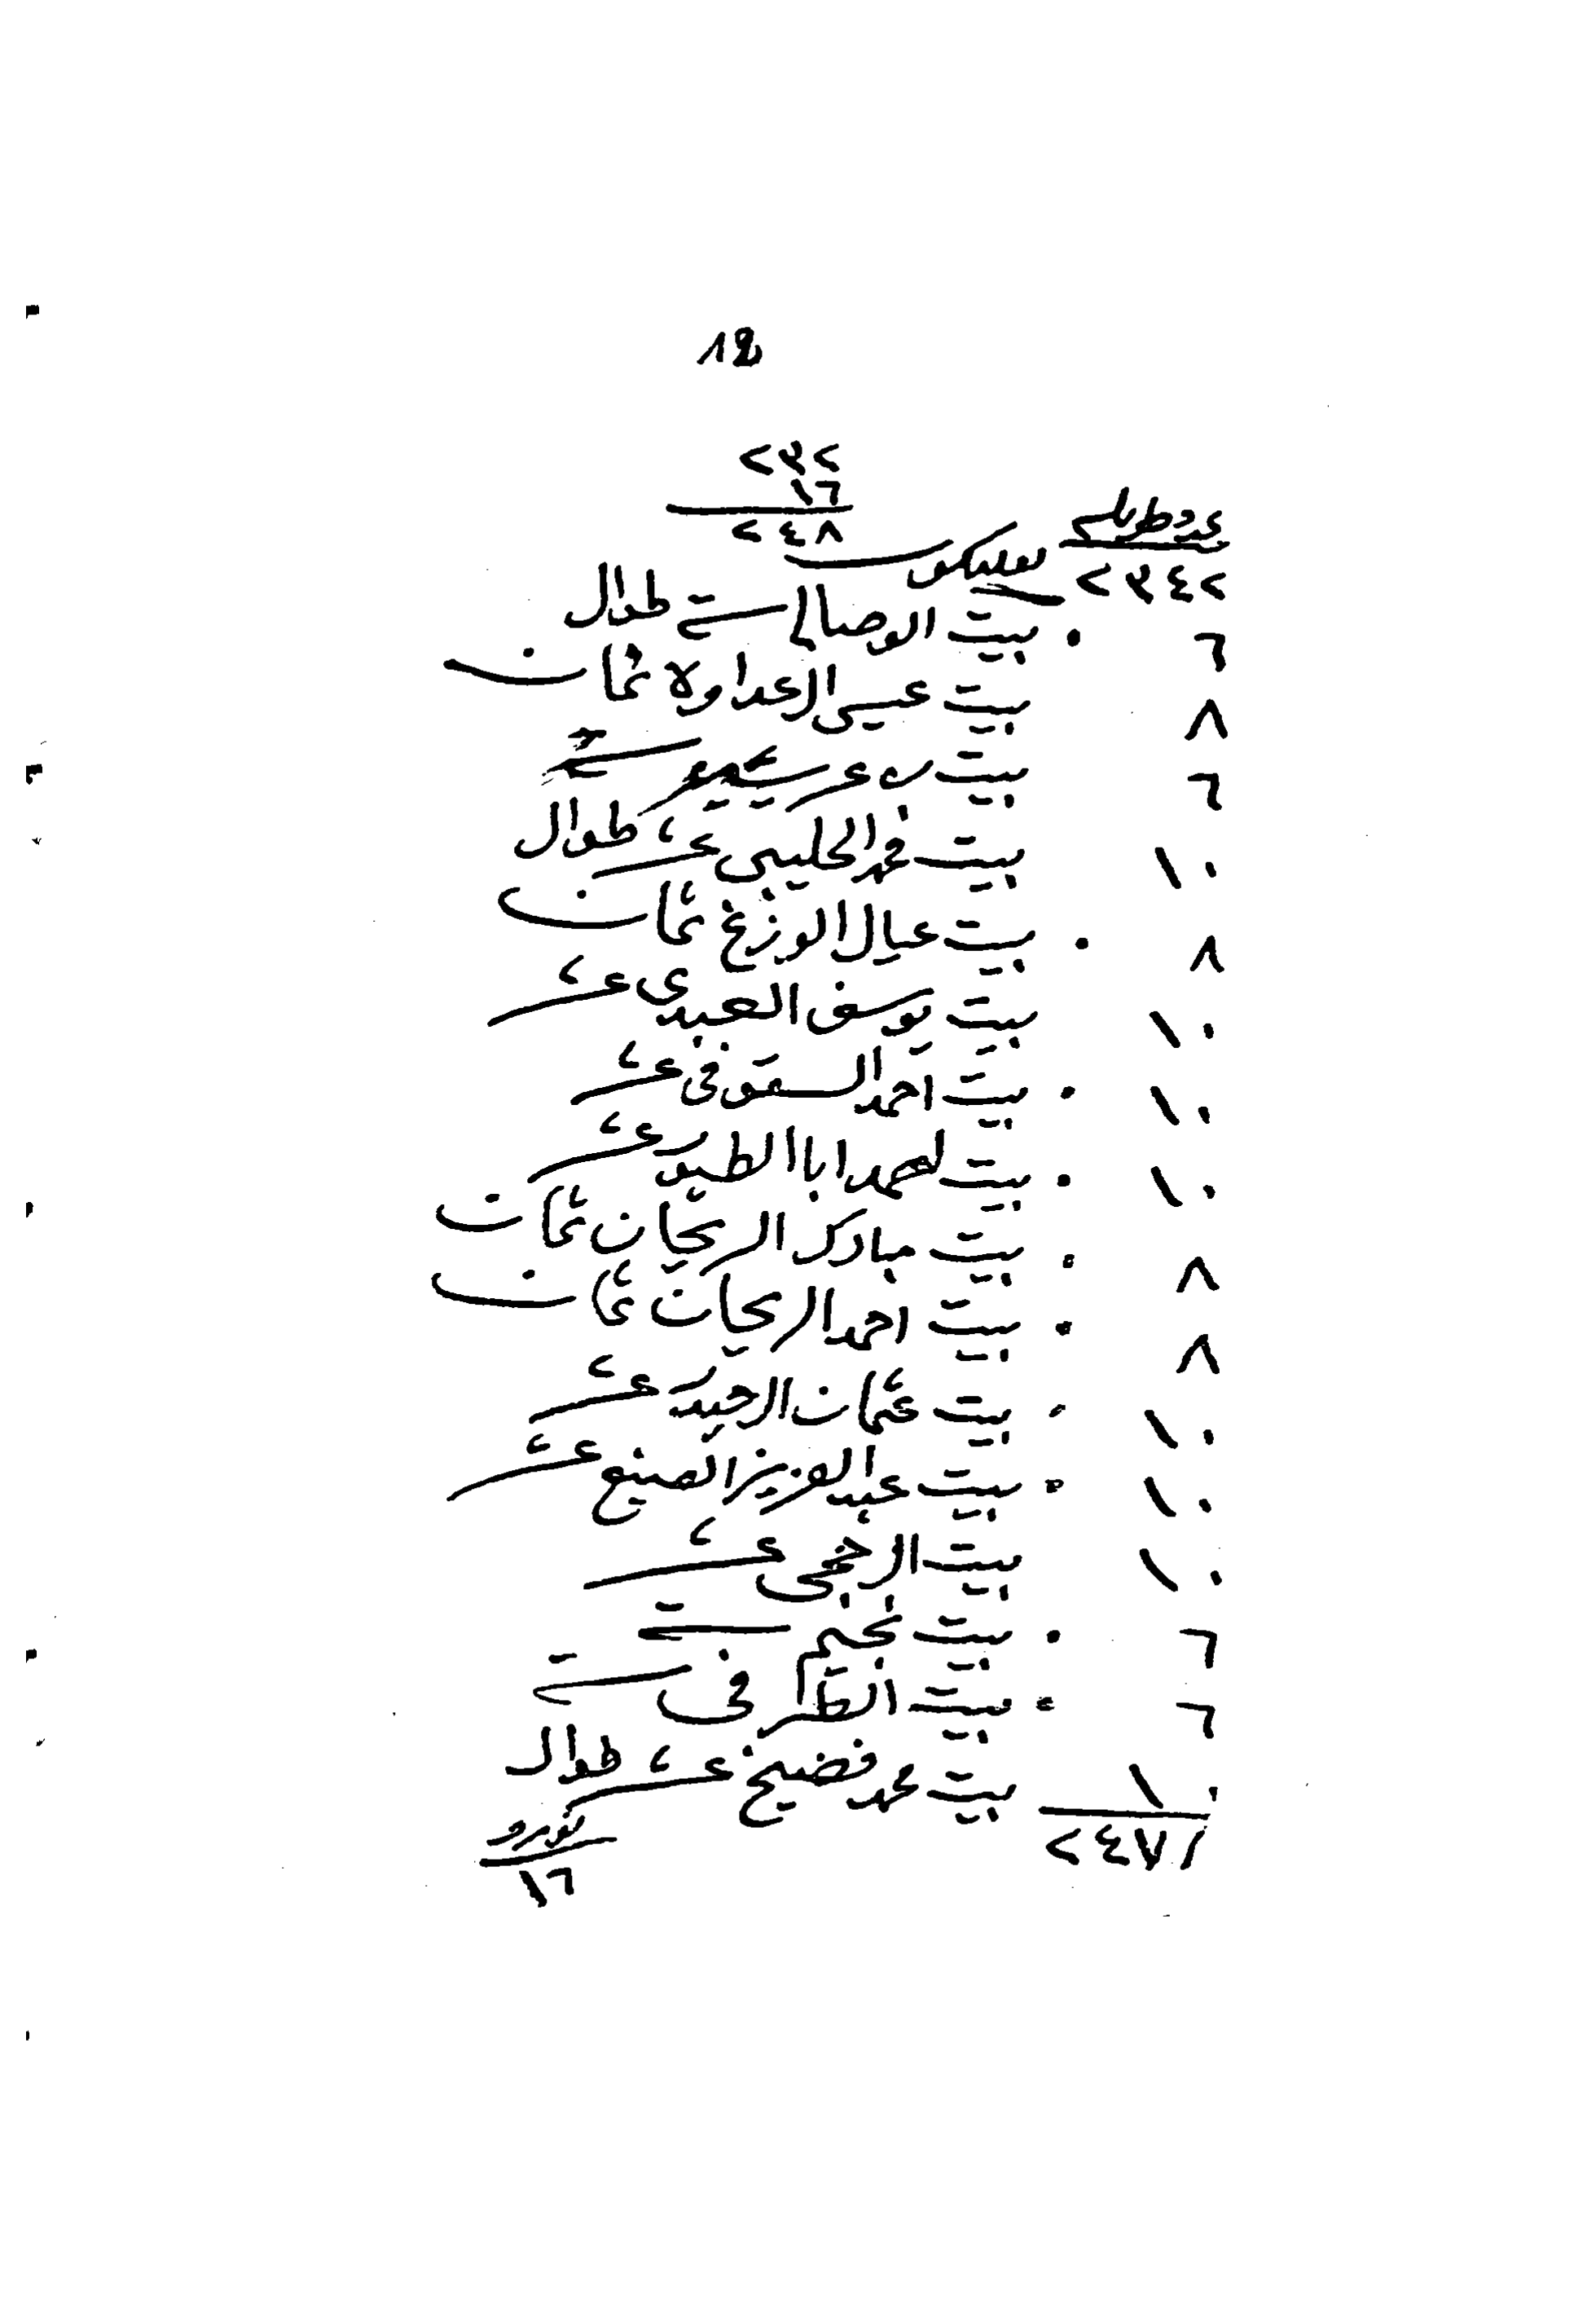 18
٢٣٢
١٦
٢٤٨
عدد طوله
٢٣٤٢
٦ . بيت الوصالي ستة طوال
٨ بيت عيسى الرعدا ولا ثمان
٦ بيت ستة
١٠ بيت فهد الخليبي عشر طوال
٨ . بيت عيال الوزغ ثمان
١٠ بيت يوسف العبدي عشر
١٠ . بيت احمد السقوفي عشر
١٠ . بيت اباالطيور عشر
٨ . بيت مبارك الريحان ثمان
٨ . بيت احمد الريحان ثمان
١٠ . بيت عثمان الرحيد عشر
١٠ . بيت عبدالعزيز الصنيع عشر
١٠ بيت الرخجي عشر
٦ . بيت نجم ستة
٦ . بيت القطرفي ستة
١٠ بيت محمد فضيخ عشر طوال
٢٤٧٨
١٦